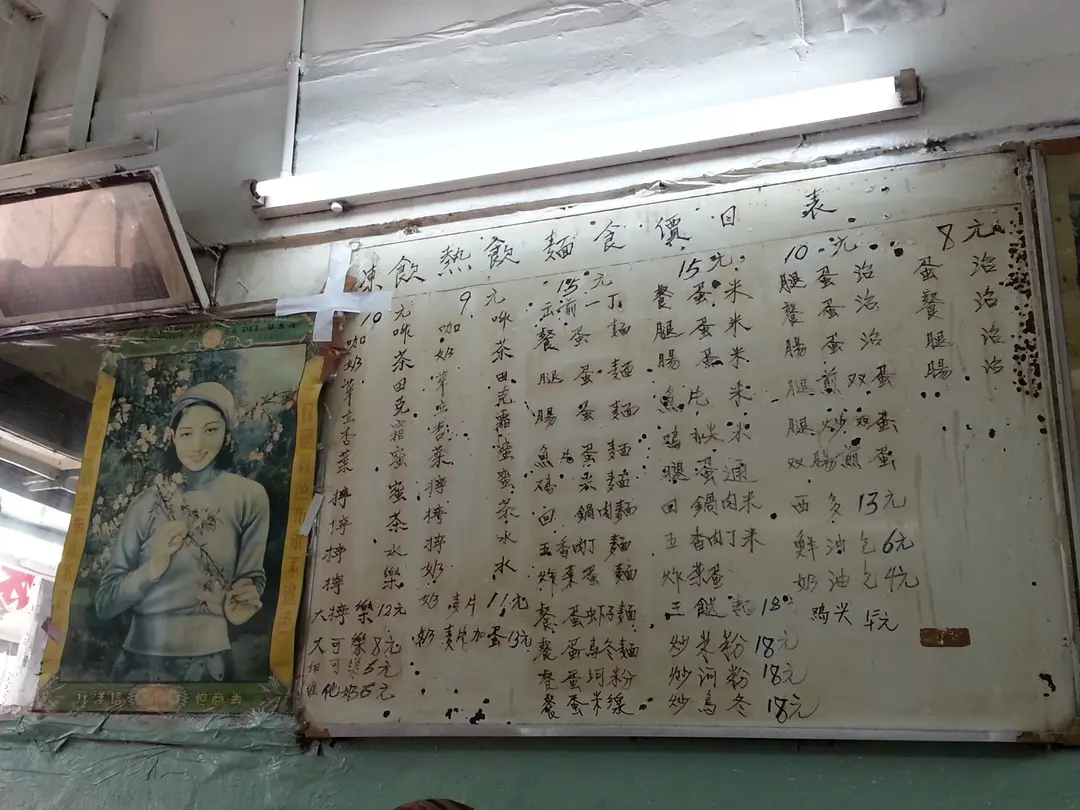 凍飲熱飲麵食價目表
10元
咖啡
奶茶
華田
立克
杏霜
菜蜜
檸蜜
檸茶
檸水
檸樂
大檸樂12元
大可樂8元
細可樂5元
維他奶5元
9元
咖啡
奶茶
華田
立克
杏霜
菜蜜
檸蜜
檸茶
檸水
奶水
奶麦片11元
奶麦片加蛋13元
13元
出前一丁
餐蛋麵
腿蛋麵
腸蛋麵
魚片蛋麵
鸡尖麵
回鍋肉麵
五香肉丁麵
炸菜蛋麵
餐蛋虾子麵
餐蛋烏冬麵
餐蛋河粉
餐蛋米線
15元
餐蛋米
腿蛋米
腸蛋米
魚片米
鸡尖米
腿蛋通
回鍋肉米
五香肉丁米
炸菜蛋
三餸麵18
炒米粉18元
炒河粉18元
炒烏冬18元
10元
腿蛋治
餐蛋治
腸蛋治
腿煎双蛋
腿炒双蛋
双腸煎蛋
西多13元
鮮油包6元
奶油包4元
鸡尖5元
8元
蛋治
餐治
腿治
腸治